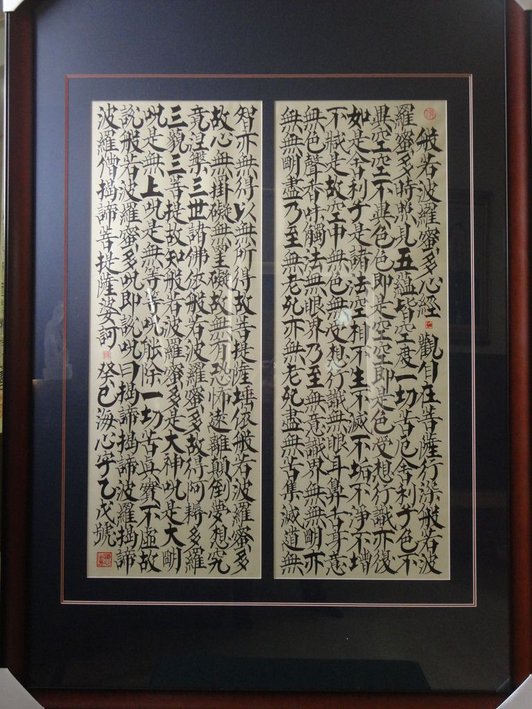 般若波羅蜜多心經 觀自在菩薩行深般若波
羅蜜多時照見五蘊皆空度一切苦厄舍利子色不
異空空不異色色即是空空即是色受想行識亦復
如是舍利子是諸法空相不生不滅不垢不淨不增
不減是故空中無色無受想行識無眼耳鼻舌身意
無色聲香味觸法無眼界乃至無意識界無無明亦
無無明盡乃至無老死亦無老死盡無苦集滅道無
智亦無得以無所得故菩提薩埵依般若波羅蜜多
故心無掛礙無罣礙故無有恐怖遠離顛倒夢想究
竟涅槃三世諸佛依般若波羅蜜多故得阿耨多羅
三藐三菩提故知般若波羅蜜多是大神呪是大明
呪是無上呪是無等等呪能除一切苦真實不虛故
說般若波羅蜜多呪即說呪曰揭諦揭諦波羅揭諦
波羅僧揭諦菩提薩婆訶 癸巳海心